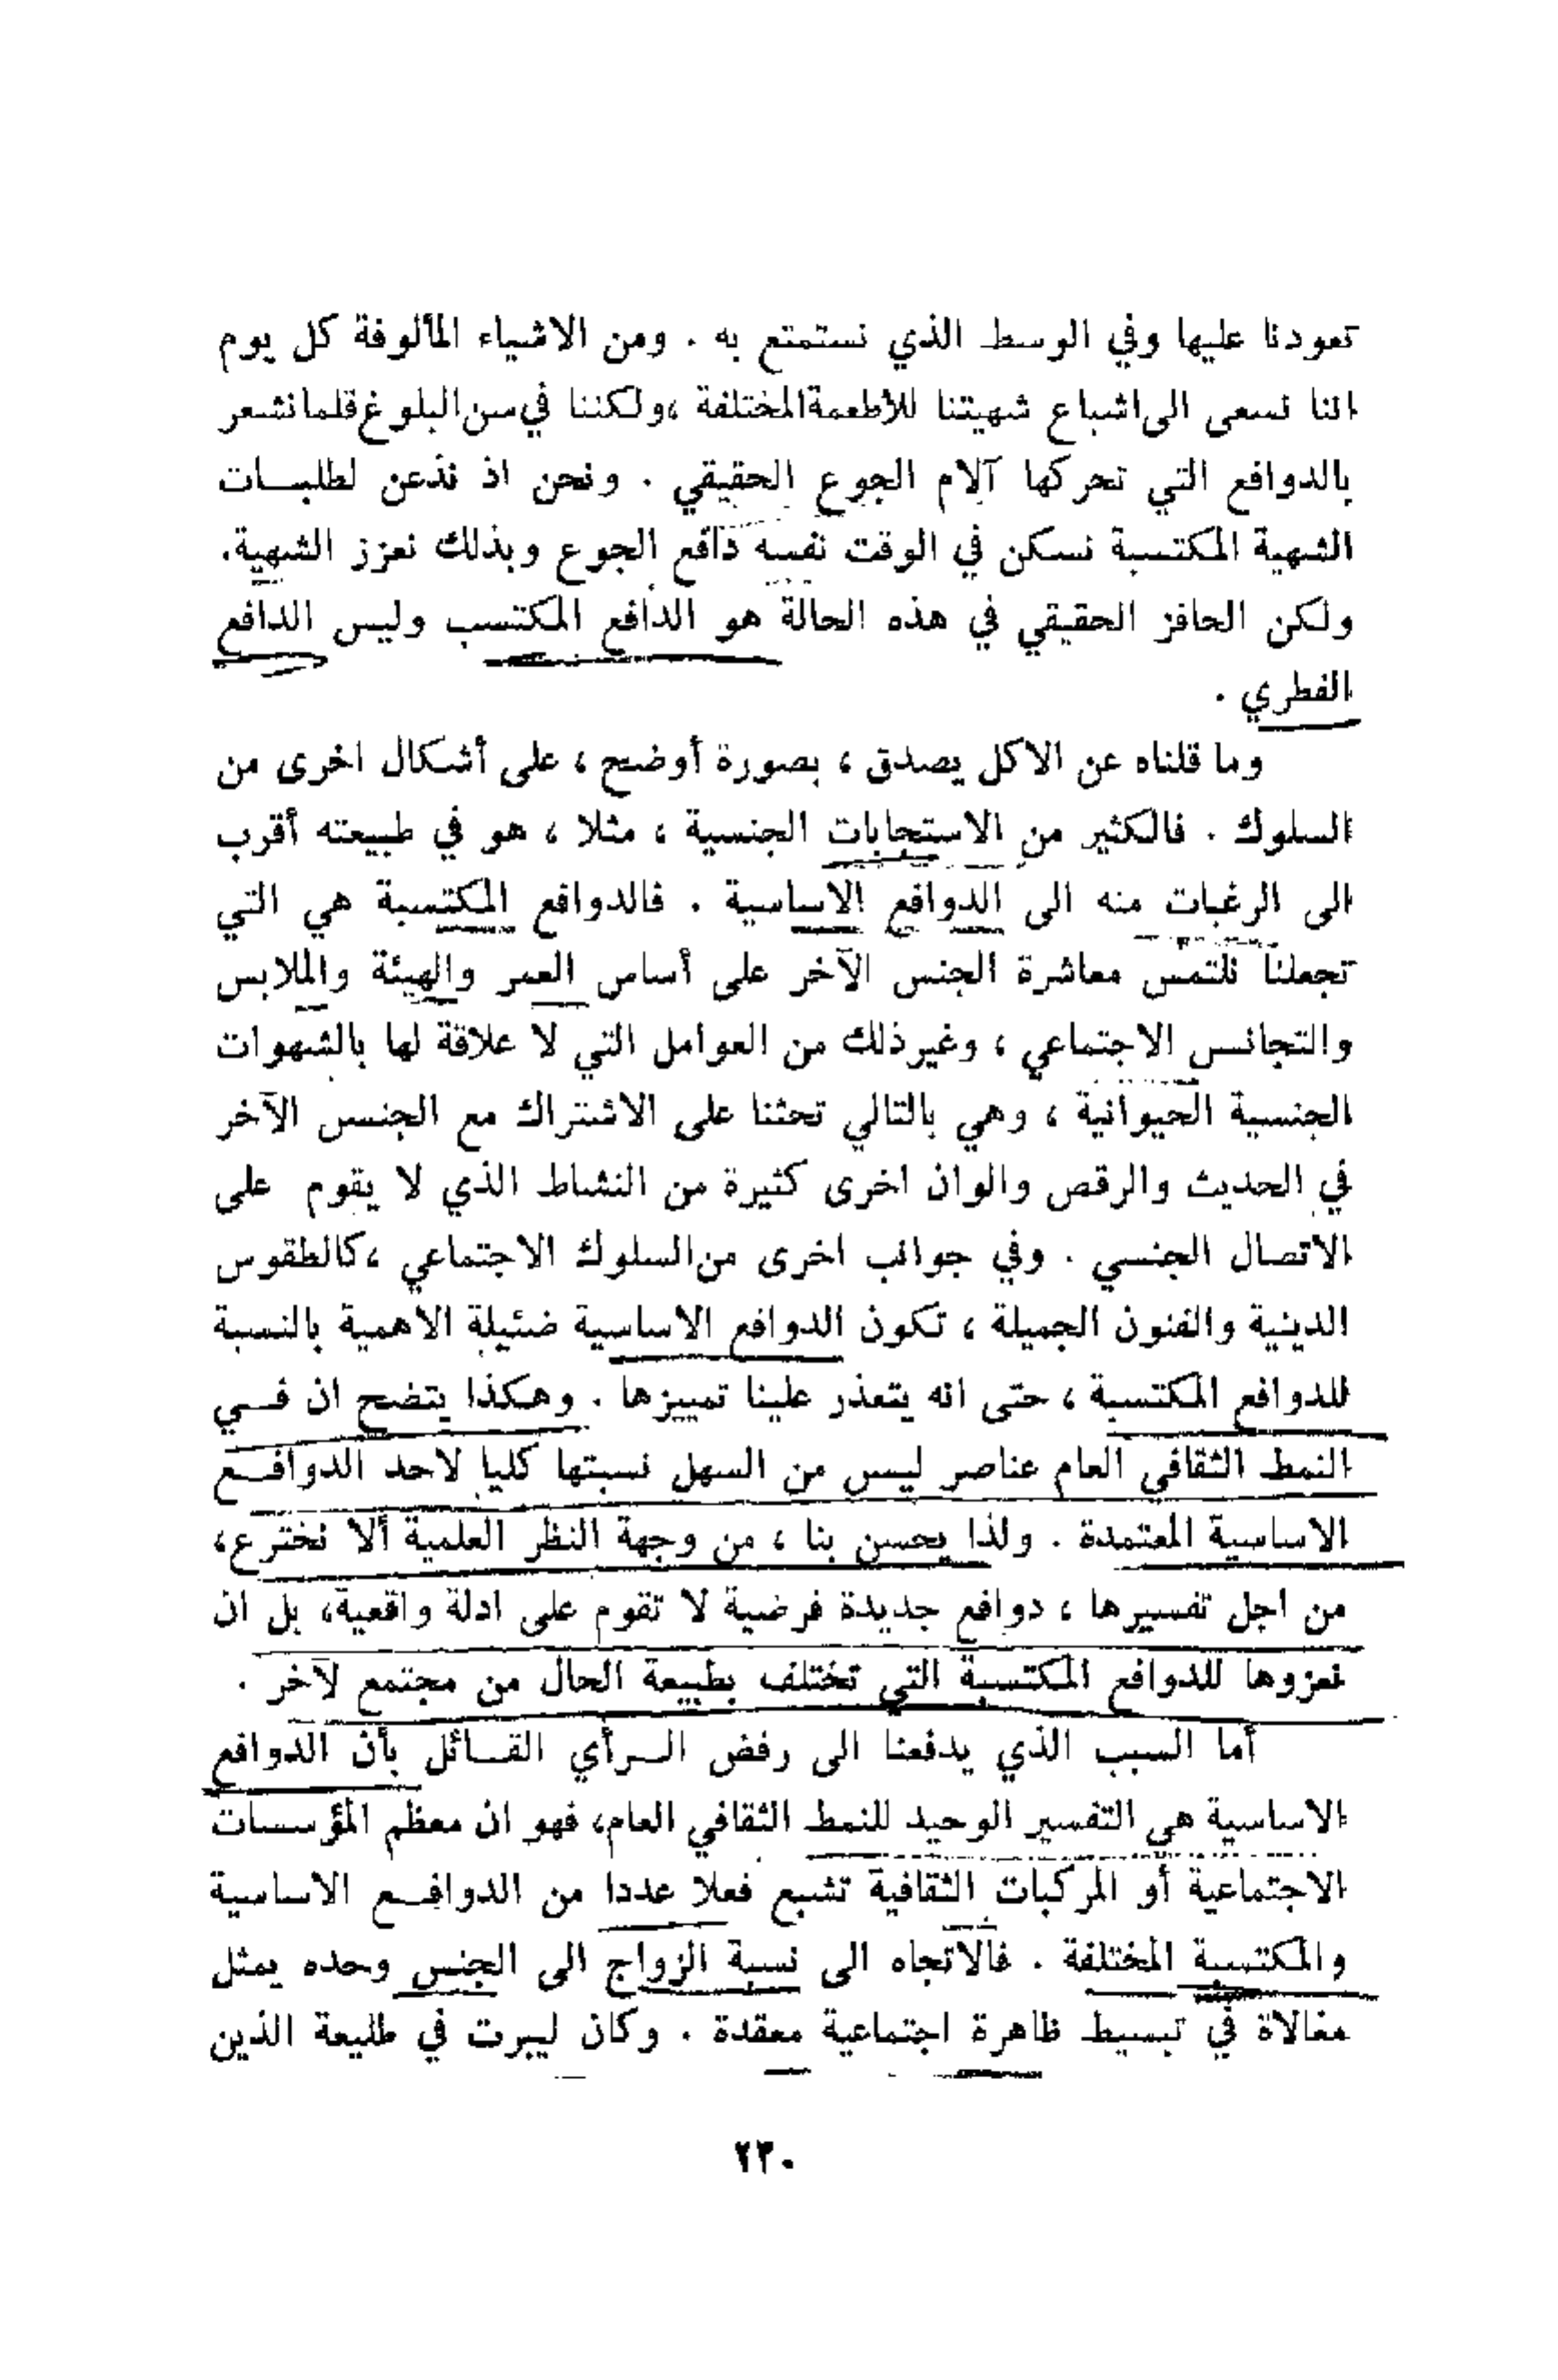 تعودنا عليها وفي الوسط الذي نستمتع به . ومن الاشياء المألوفة كل يوم
اننا نسعى الى اشباع شهيتنا للأطعمة المختلفة ، ولكننا في سن البلوغ قلما نشعر
بالدوافع التي تحركها آلام الجوع الحقيقي . ونحن اذ نذعن لطلبات
الشهية المكتسبة نسكن في الوقت نفسه دافع الجوع وبذلك نعزز الشهية .
ولكن الحافز الحقيقي في هذه الحالة هو الدافع المكتسب وليس الدافع
الفطري .
وما قلناه عن الاكل يصدق ، بصورة أوضح ، على أشكال اخرى من
السلوك . فالكثير من الاستجابات الجنسية ، مثلا ، هو في طبيعته أقرب
الى الرغبات منه الى الدوافع الاساسية . فالدوافع المكتسبة هي التي
تجعلنا نلتمس معاشرة الجنس الآخر على أساس العمر والهيئة والملابس
والتجانس الاجتماعي ، وغير ذلك من العوامل التي لا علاقة لها بالشهوات
الجنسية الحيوانية ، وهي بالتالي تحثنا على الاشتراك مع الجنس الآخر
في الحديث والرقص والوان اخرى كثيرة من النشاط الذي لا يقوم على
الاتصال الجنسي . وفي جوانب اخرى من السلوك الاجتماعي ، كالطقوس
الدينية والفنون الجميلة ، تكون الدوافع الاساسية ضئيلة الاهمية بالنسبة
للدوافع المكتسبة ، حتى انه يتعذر علينا تمييزها . وهكذا يتضح ان فـي
النمط الثقافي العام عناصر ليس من السهل نسبتها كليا لاحد الدوافـع
الاساسية المعتمدة . ولذا يحسن بنا ، من وجهة النظر العلمية ألا نخترع ،
من اجل تفسيرها ، دوافع جديدة فرضية لا تقوم على ادلة واقعية ، بل ان
نعزوها للدوافع المكتسبة التي تختلف بطبيعة الحال من مجتمع لآخر .
أما السبب الذي يدفعنا الى رفض الـرأي القـائل بأن الدوافع
الاساسية هي التفسير الوحيد للنمط الثقافي العام ، فهو ان معظم المؤسسات
الاجتماعية أو المركبات الثقافية تشبع فعلا عددا من الدوافـع الاساسية
والمكتسبة المختلفة . فالاتجاه الى نسبة الزواج الى الجنس وحده يمثل
مغالاة في تبسيط ظاهرة اجتماعية معقدة . وكان ليبرت في طليعة الذين
٢٣٠